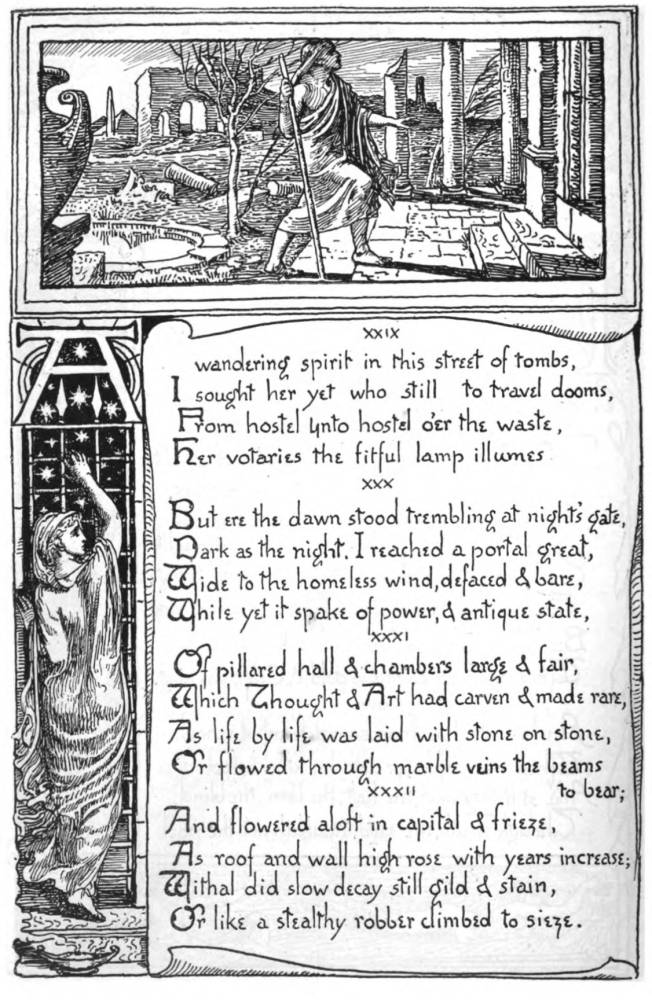 XXIX
A wandering spirit in this street of tombs,
I sought her yet who still to travel dooms,
From hostel unto hostel o'er the waste,
Her votaries the fitful lamp illumes
XXX
But ere the dawn stood trembling at night's gate,
Dark as the night, I reached a portal great,
Wide to the homeless wind, defaced & bare,
While yet it spake of power, & antique state,
XXXI
Of pillared hall & chambers large & fair,
Which Thought & Art had carven & made rare,
As life by life was laid with stone on stone,
Or flowed through marble veins the beams
to bear;
XXXII
And flowered aloft in capital & frieze,
As roof and wall high rose with years increase;
Withal did slow decay still gild & stain,
Or like a stealthy robber climbed to sieze.